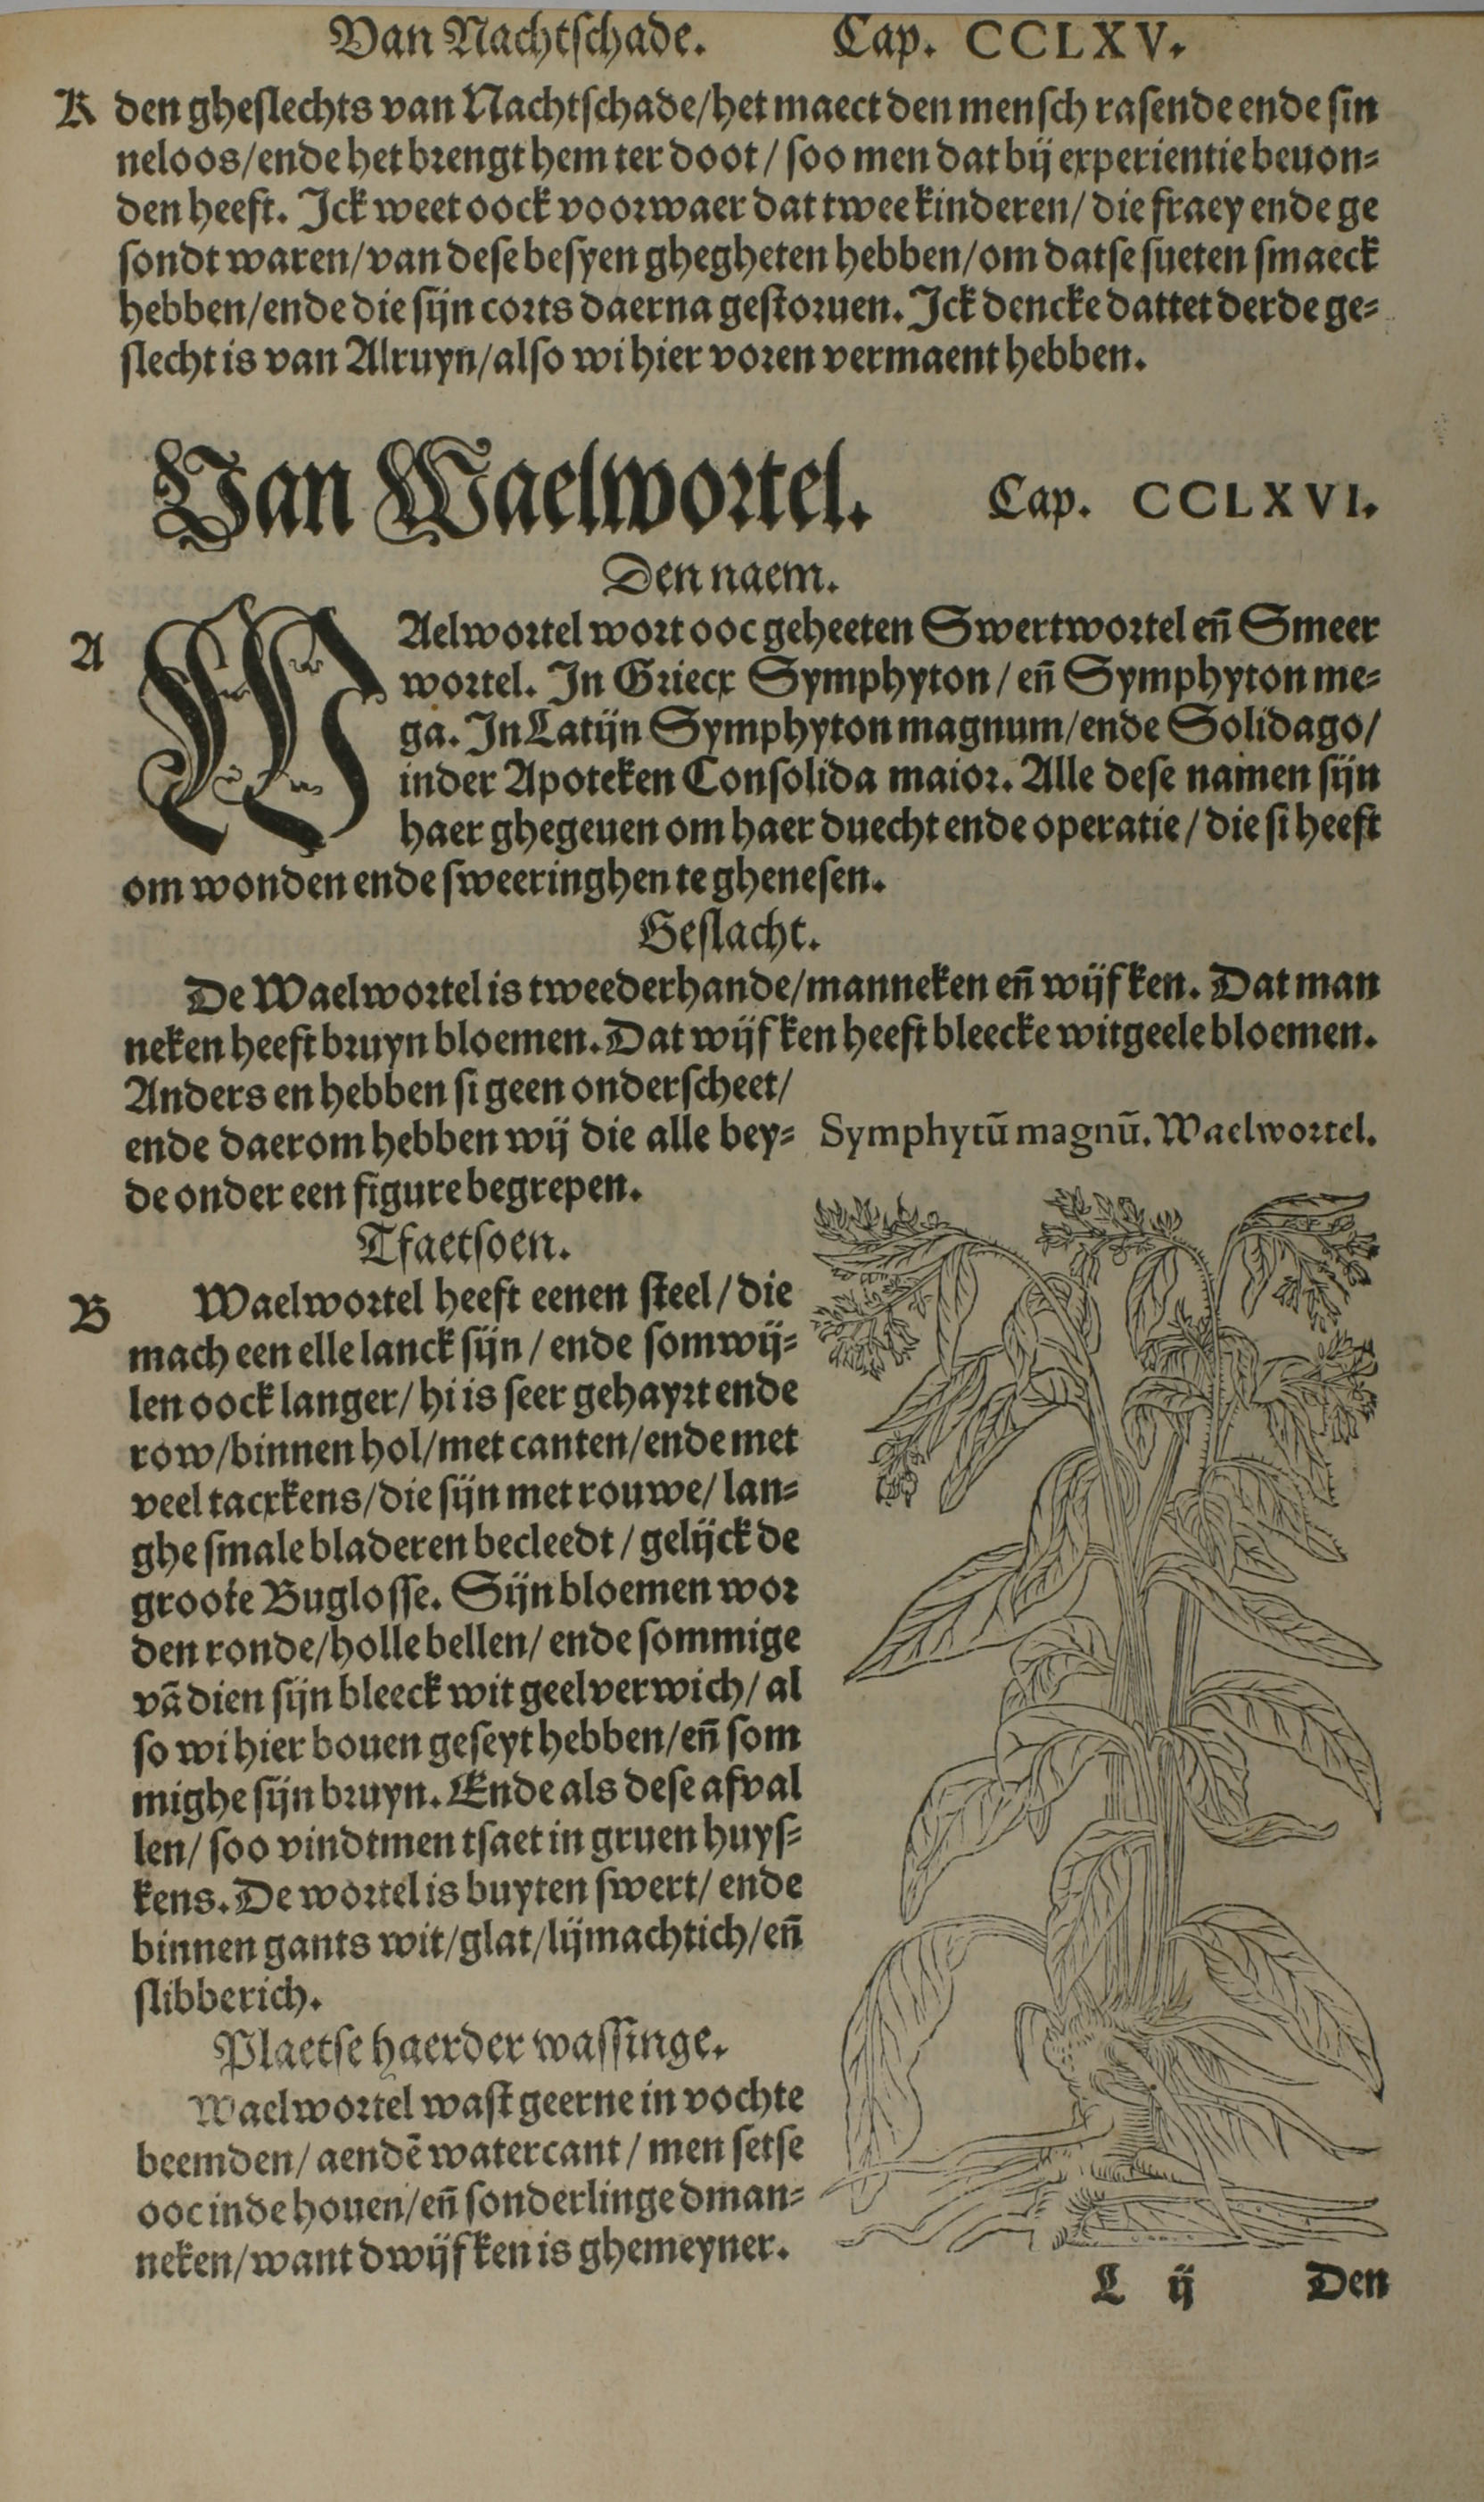 Van Nachtschade. Cap. CCLXV.
K den gheslechts van Nachtschade/het maect den mensch rasende ende sin
neloos/ende het brengt hem ter doot/ soo men dat bij experientie beuon-
den heeft. Ick weet oock voorwaer dat twee kinderen/ die fraey ende ge
sondt waren/van dese besyen ghegheten hebben/om datse sueten smaeck
hebben/ende die sijn corts daerna gestoruen. Ick dencke dattet derde ge-
slecht is van Alruyn/also wi hier voren vermaent hebben.
Van Waelwortel. Cap. CCLXVI.
Den naem.
A WAelwortel wort ooc geheeten Swertwortel en̄ Smeer
wortel. In Griecx Symphyton/ en̄ Symphyton me-
ga. In Latijn Symphyton magnum/ende Solidago/
inder Apoteken Consolida maior. Alle dese namen sijn
haer ghegeuen om haer duecht ende operatie/ die si heeft
om wonden ende sweeringhen te ghenesen.
Geslacht.
De Waelwortel is tweederhande/manneken en̄ wijfken. Dat man
neken heeft bruyn bloemen. Dat wijfken heeft bleecke witgeele bloemen.
Anders en hebben si geen onderscheet/
ende daerom hebben wij die alle bey-
de onder een figure begrepen.
Symphytū magnū. Waelwortel.
Tfaetsoen.
B Waelwortel heeft eenen steel/ die
mach een elle lanck sijn/ ende somwij-
len oock langer/ hi is seer gehayrt ende
row/binnen hol/met canten/ende met
veel tacxkens/die sijn met rouwe/ lan-
ghe smale bladeren becleedt/ gelijck de
groote Buglosse. Sijn bloemen wor
den ronde/holle bellen/ ende sommige
vā dien sijn bleeck wit geelverwich/ al
so wi hier bouen geseyt hebben/en̄ som
mighe sijn bruyn. Ende als dese afval
len/ soo vindtmen tsaet in gruen huys-
kens. De wortel is buyten swert/ ende
binnen gants wit/glat/lijmachtich/en̄
slibberich.
Plaetse haerder wassinge.
Waelwortel wast geerne in vochte
beemden/ aendē watercant/ men setse
ooc in de houen/en̄ sonderlinge dman-
neken/want dwijfken is ghemeyner.
L ij Den